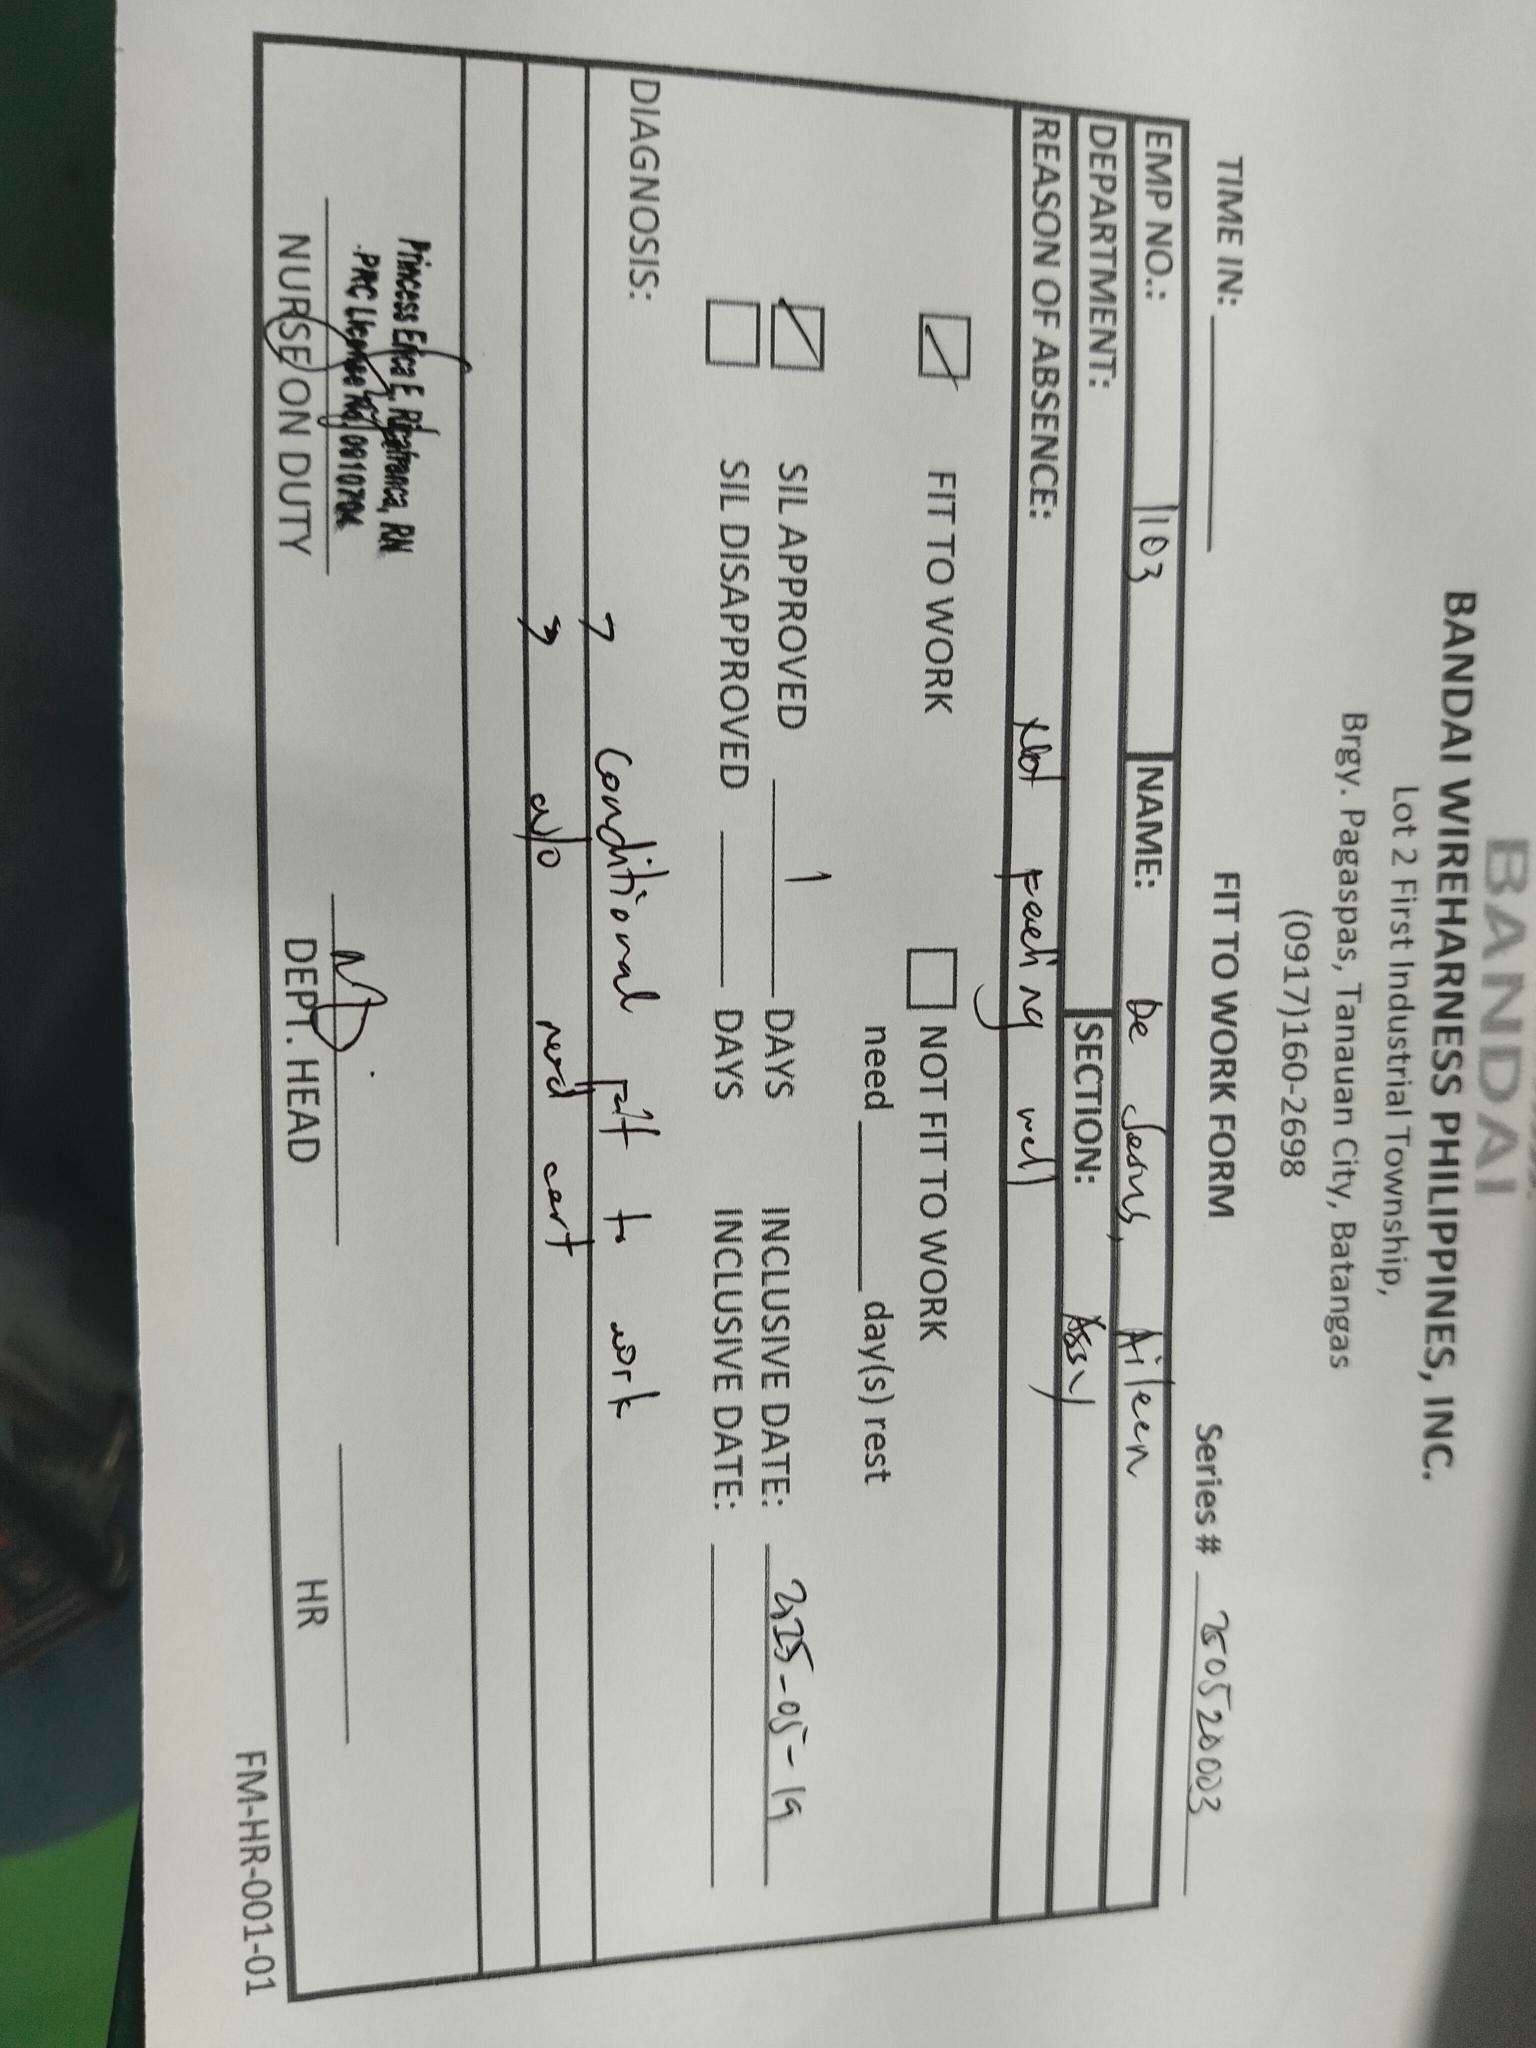 BANDAI
BANDAI WIREHARNESS PHILIPPINES, INC.
Lot 2 First Industrial Township,
Brgy. Pagaspas, Tanauan City, Batangas
(0917)160-2698
TIME IN: FIT TO WORK FORM Series # 250520003
EMP NO.: 1103 NAME: De Jesus, Aileen
DEPARTMENT: SECTION: Assy
REASON OF ABSENCE: Not Feeling well
FIT TO WORK NOT FIT TO WORK
need day(s) rest
SIL APPROVED 1 DAYS INCLUSIVE DATE: 2025-05-19
SIL DISAPPROVED DAYS INCLUSIVE DATE:
DIAGNOSIS:
Conditional Fit to work
w/o med cert
Princess Erica E. Ricafranca, RN
PRC License No.
NURSE ON DUTY DEPT. HEAD HR
FM-HR-001-01